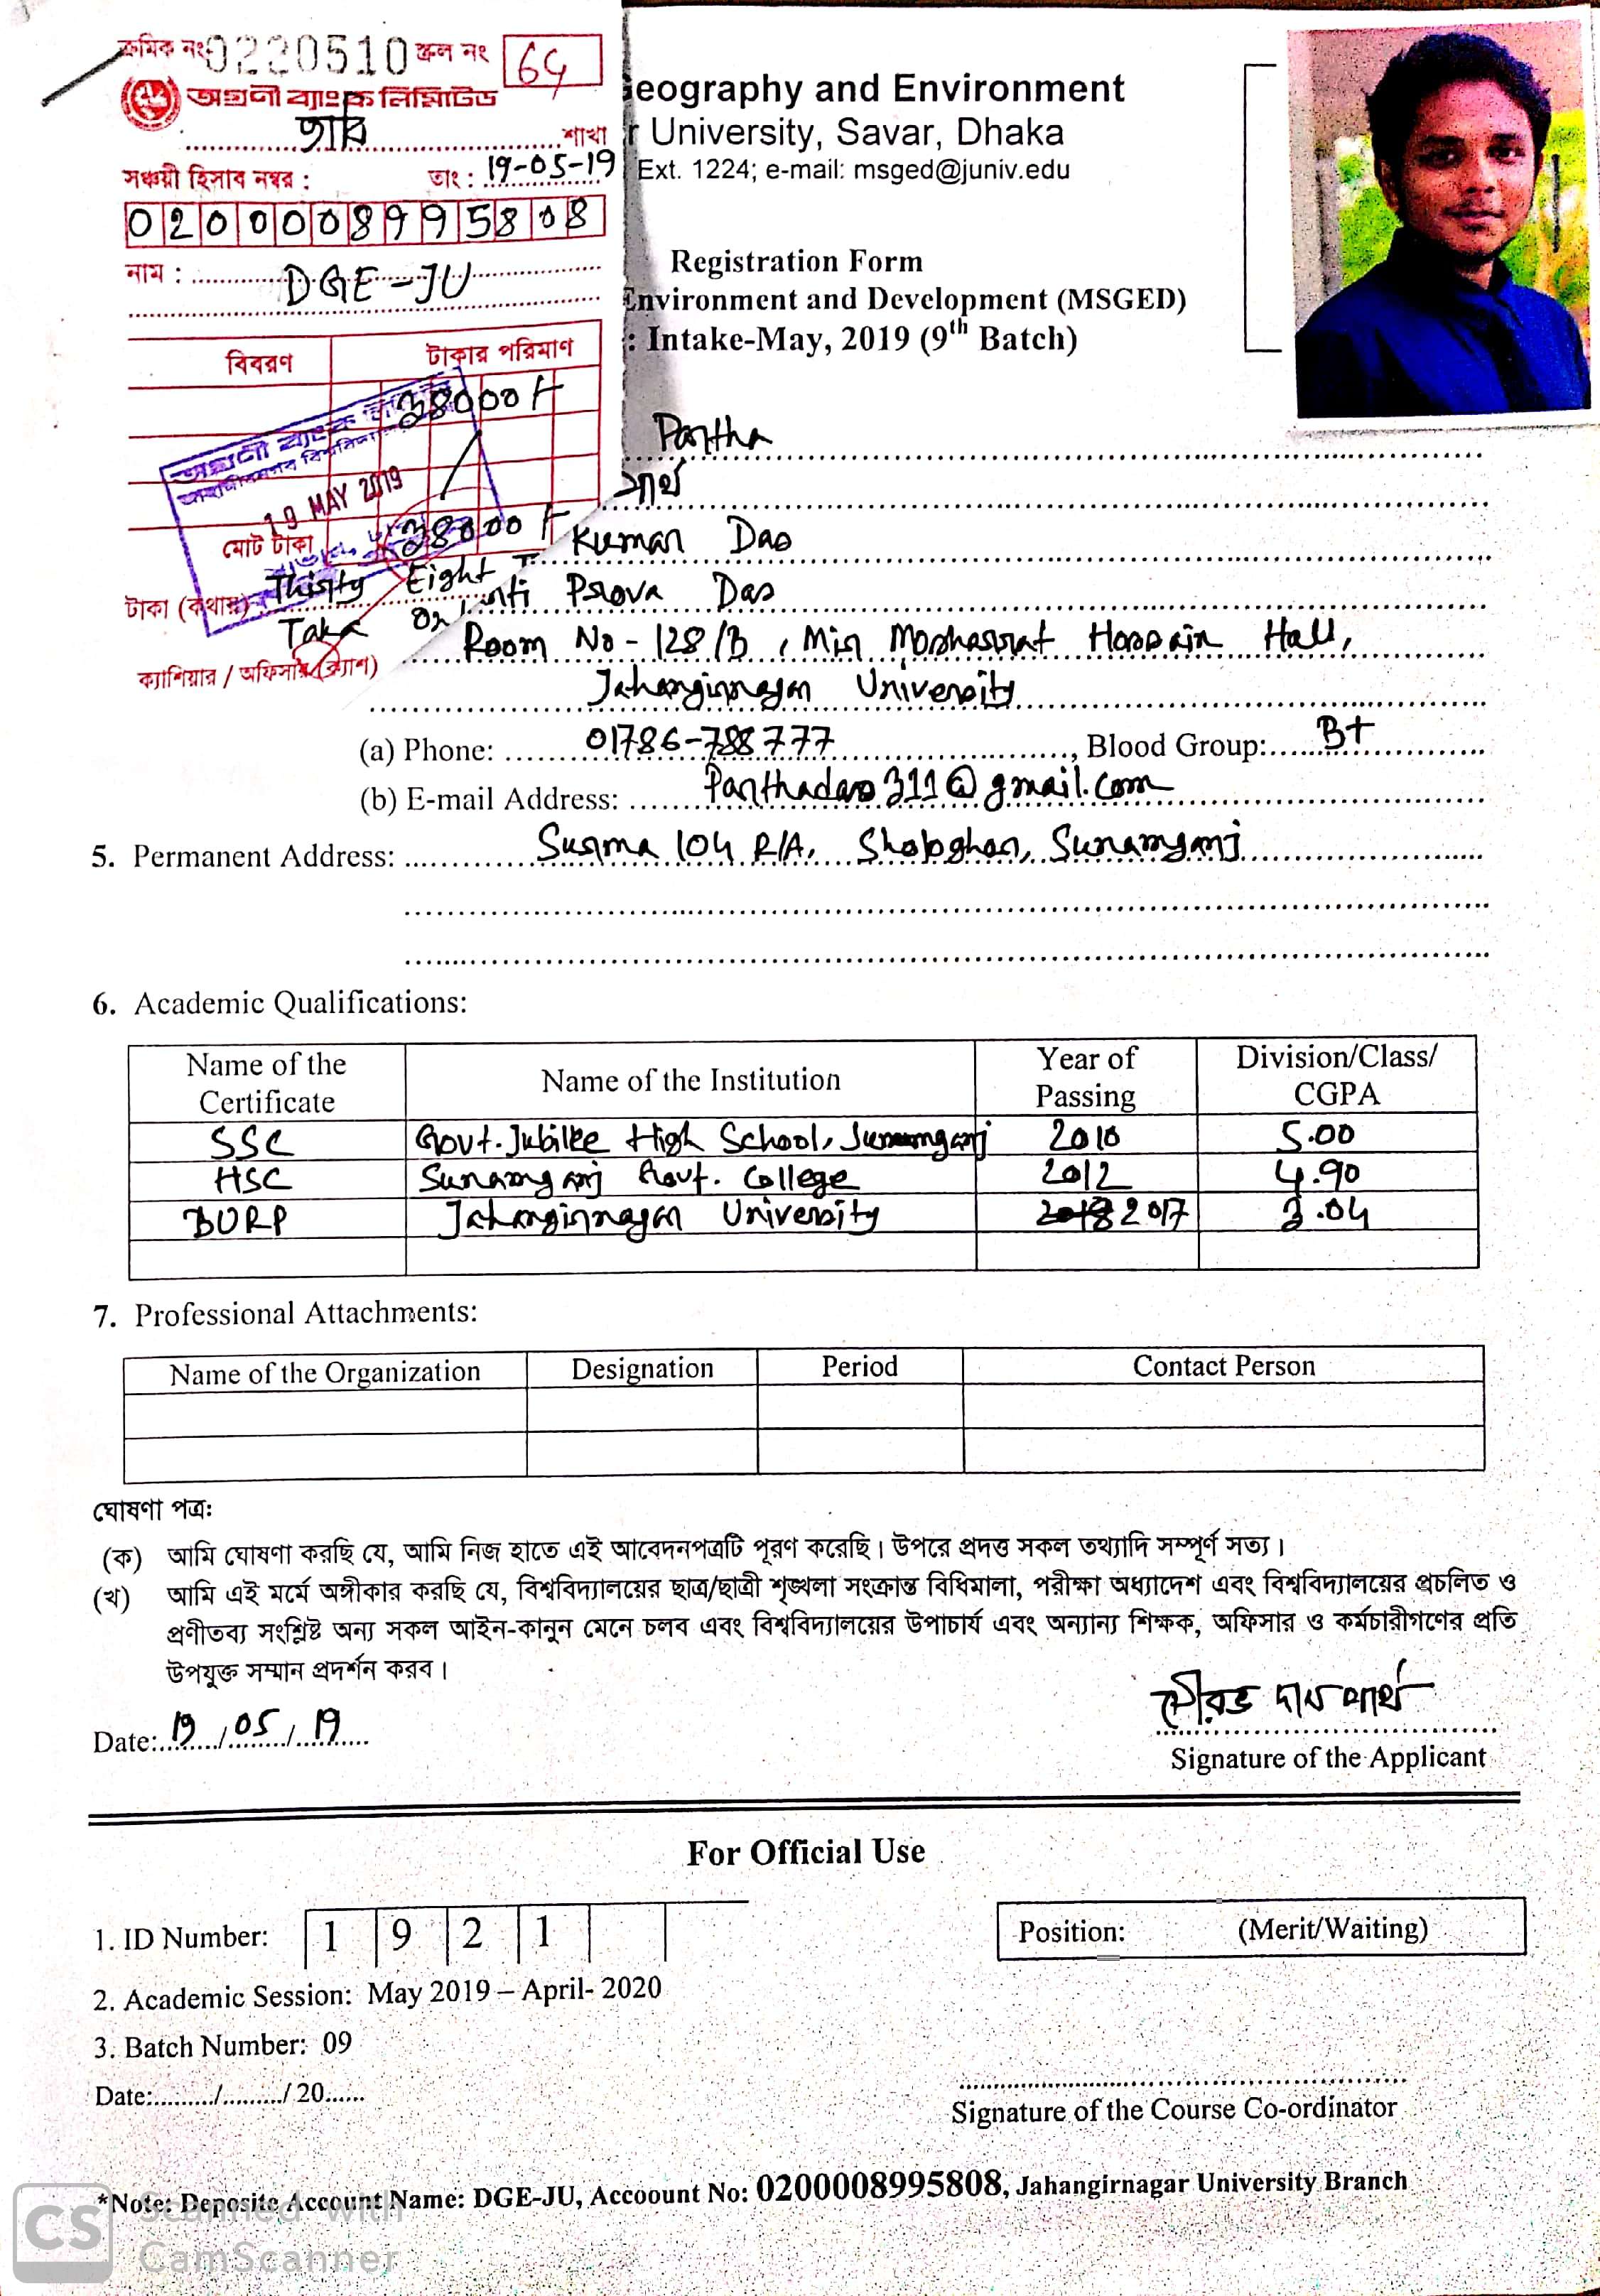 ক্রমিক নং 0220510 স্ক্রল নং 64
অগ্রণী ব্যাংক লিমিটেড
জাবি শাখা
সঞ্চয়ী হিসাব নম্বর : তাং : 19-05-19
0200008995808
নাম : DGE-JU
বিবরণ টাকার পরিমাণ
38000/-
অগ্রণী ব্যাংক লিমিটেড
19 MAY 2019
মোট টাকা 38000/-
টাকা (কথায়) Thirty Eight
Taka
ক্যাশিয়ার / অফিসার (ক্যাশ)
eography and Environment
r University, Savar, Dhaka
Ext. 1224; e-mail: msged@juniv.edu
Registration Form
Environment and Development (MSGED)
: Intake-May, 2019 (9th Batch)
Partha
পার্থ
Kumar Das
Prova Das
Room No - 128/B, Mir Mosharrat Hossain Hall,
Jahangirnagar University
(a) Phone: 01786-788777, Blood Group: B+
(b) E-mail Address: Parthadas311@gmail.com
5. Permanent Address: Surma 104 R/A, Shologhar, Sunamganj
6. Academic Qualifications:
Name of the Certificate Name of the Institution Year of Passing Division/Class/ CGPA
SSC Govt. Jubilee High School, Sunamganj 2010 5.00
HSC Sunamganj Govt. College 2012 4.90
BURP Jahangirnagar University 2018 2017 3.04
7. Professional Attachments:
Name of the Organization Designation Period Contact Person
ঘোষণা পত্র:
(ক) আমি ঘোষণা করছি যে, আমি নিজ হাতে এই আবেদনপত্রটি পূরণ করেছি। উপরে প্রদত্ত সকল তথ্যাদি সম্পূর্ণ সত্য।
(খ) আমি এই মর্মে অঙ্গীকার করছি যে, বিশ্ববিদ্যালয়ের ছাত্র/ছাত্রী শৃঙ্খলা সংক্রান্ত বিধিমালা, পরীক্ষা অধ্যাদেশ এবং বিশ্ববিদ্যালয়ের প্রচলিত ও
প্রণীতব্য সংশ্লিষ্ট অন্য সকল আইন-কানুন মেনে চলব এবং বিশ্ববিদ্যালয়ের উপাচার্য এবং অন্যান্য শিক্ষক, অফিসার ও কর্মচারীগণের প্রতি
উপযুক্ত সম্মান প্রদর্শন করব।
সৌরভ দাস পার্থ
Date: 19/05/19
Signature of the Applicant
For Official Use
1. ID Number: 1 9 2 1
Position: (Merit/Waiting)
2. Academic Session: May 2019 – April- 2020
3. Batch Number: 09
Date:........./........./20......
Signature of the Course Co-ordinator
*Note: Deposite Account Name: DGE-JU, Accoount No: 0200008995808, Jahangirnagar University Branch
CS Scanned with
CamScanner